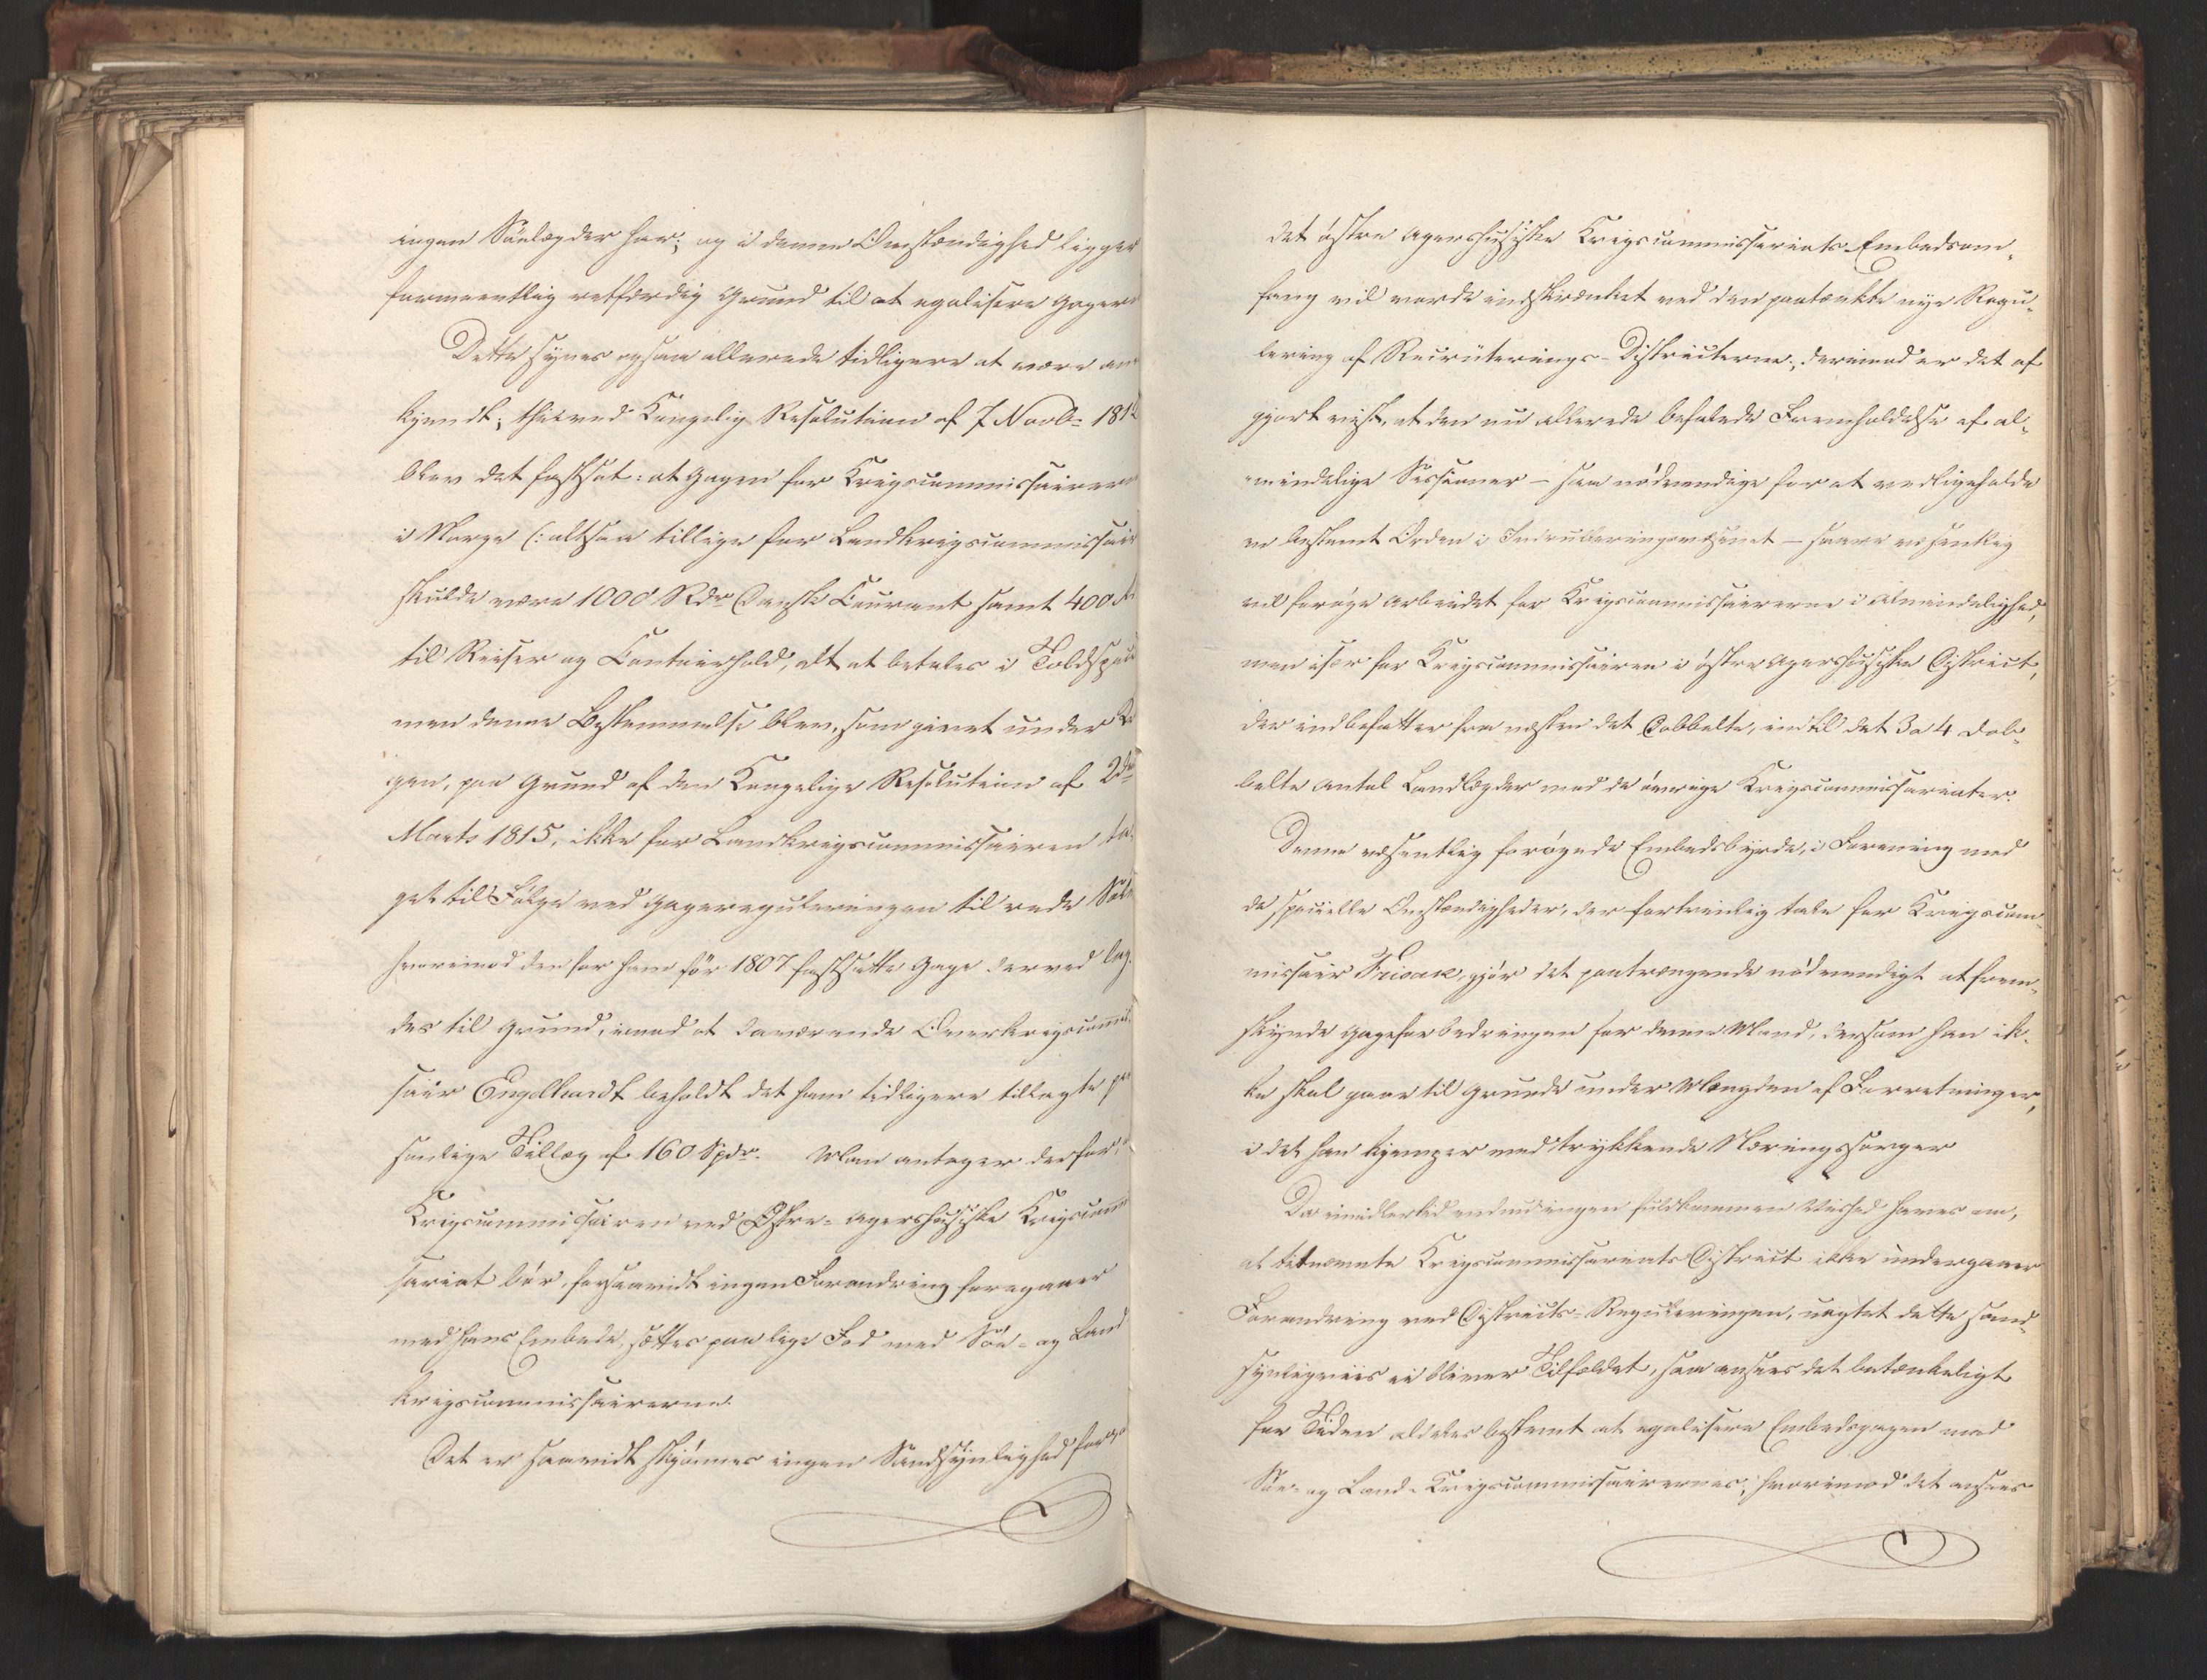 ingen Søelægder har; og i denne Omstændighed ligger
formeentlig retfærdig Grund til at egalisere Gagern
Dette synes ogsaa allerede tidligere at være an
kjendt; thi ved Kongelig Resolution af 7 Novb: 181
blev det fastsat: at Gagen for Krigscommissairern
i Norge (: altsaa tillige for Landkrigscommissair
skulde være 1000 Rdr Dansk Courant samt 400
til Reiser og Contoirhold, alt at betales i Toldspec
men denne Bestemmelse blev, som givet under
gen, paa Grund af den Kongelige Resolution af 2den
Marts 1815, ikke for Landkrigscommissairen ta-
get til Følge ved Gagereguleringen til rede Sølv
hvorimod den for ham før 1807 fastsatte Gage derved lag-
des til Grund, imod at daværende Overkrigscommis-
sair Engelhardt beholdt det ham tidligere tillagte per
sonlige Tillæg af 160 Spdr. Man antager derfor, at
Krigscommissairen ved Østre-Agershusiske Krigscommis
sariat bør, forsaavidt ingen Forandring foregaaer
med hans Embede, sættes paa lige Fod med Søe- og Land
krigscommissairerne.
Det er saavidt skjønnes ingen Sandsynlighed for, at
det østre Agershusiske Krigscommissariats Embedsom-
fang vil vorde indskrænket ved den paatænkte nye Regu-
lering af Recruterings-Districterne, derimod er det af
gjort vist, at den nu allerede befalede Fremholdelse af al-
mindelige Sessioner – som nødvendige for at vedligeholde
en bestemt Orden i Indrulleringsvæsenet – saare væsentlig
vil forøge Arbeidet for Krigscommissairerne i Almindelighed,
men især for Krigscommissairen i østre Agershusiske District,
der indbefatter fra næsten det Dobbelte, indtil det 3 a 4 dob-
belte Antal Landlægder mod de øvrige Krigscommissariater.
Denne væsentlig forøgede Embedsbyrde, i Forening med
de specielle Omstændigheder, der fortrinlig tale for Krigscom
missair Frisak, gjør det paatrængende nødvendigt at frem-
skynde Gageforbedringen for denne Mand, dersom han ik-
ke skal gaae til Grunde under Mængden af Forretninger,
i det han kjemper med trykkende Næringssorger
Da imidlertid endnu ingen fuldkommen Vished haves om,
at bemeldte Krigscommissariats District ikke undergaaer
Forandring ved Districts-Reguleringen, uagtet dette sand-
synligviis ei bliver Tilfældet, saa ansees det betænkeligt
for Tiden aldeles bestemt at egalisere Embedsgagen med
Søe- og Land-Krigscommissairernes; hvorimod det ansees